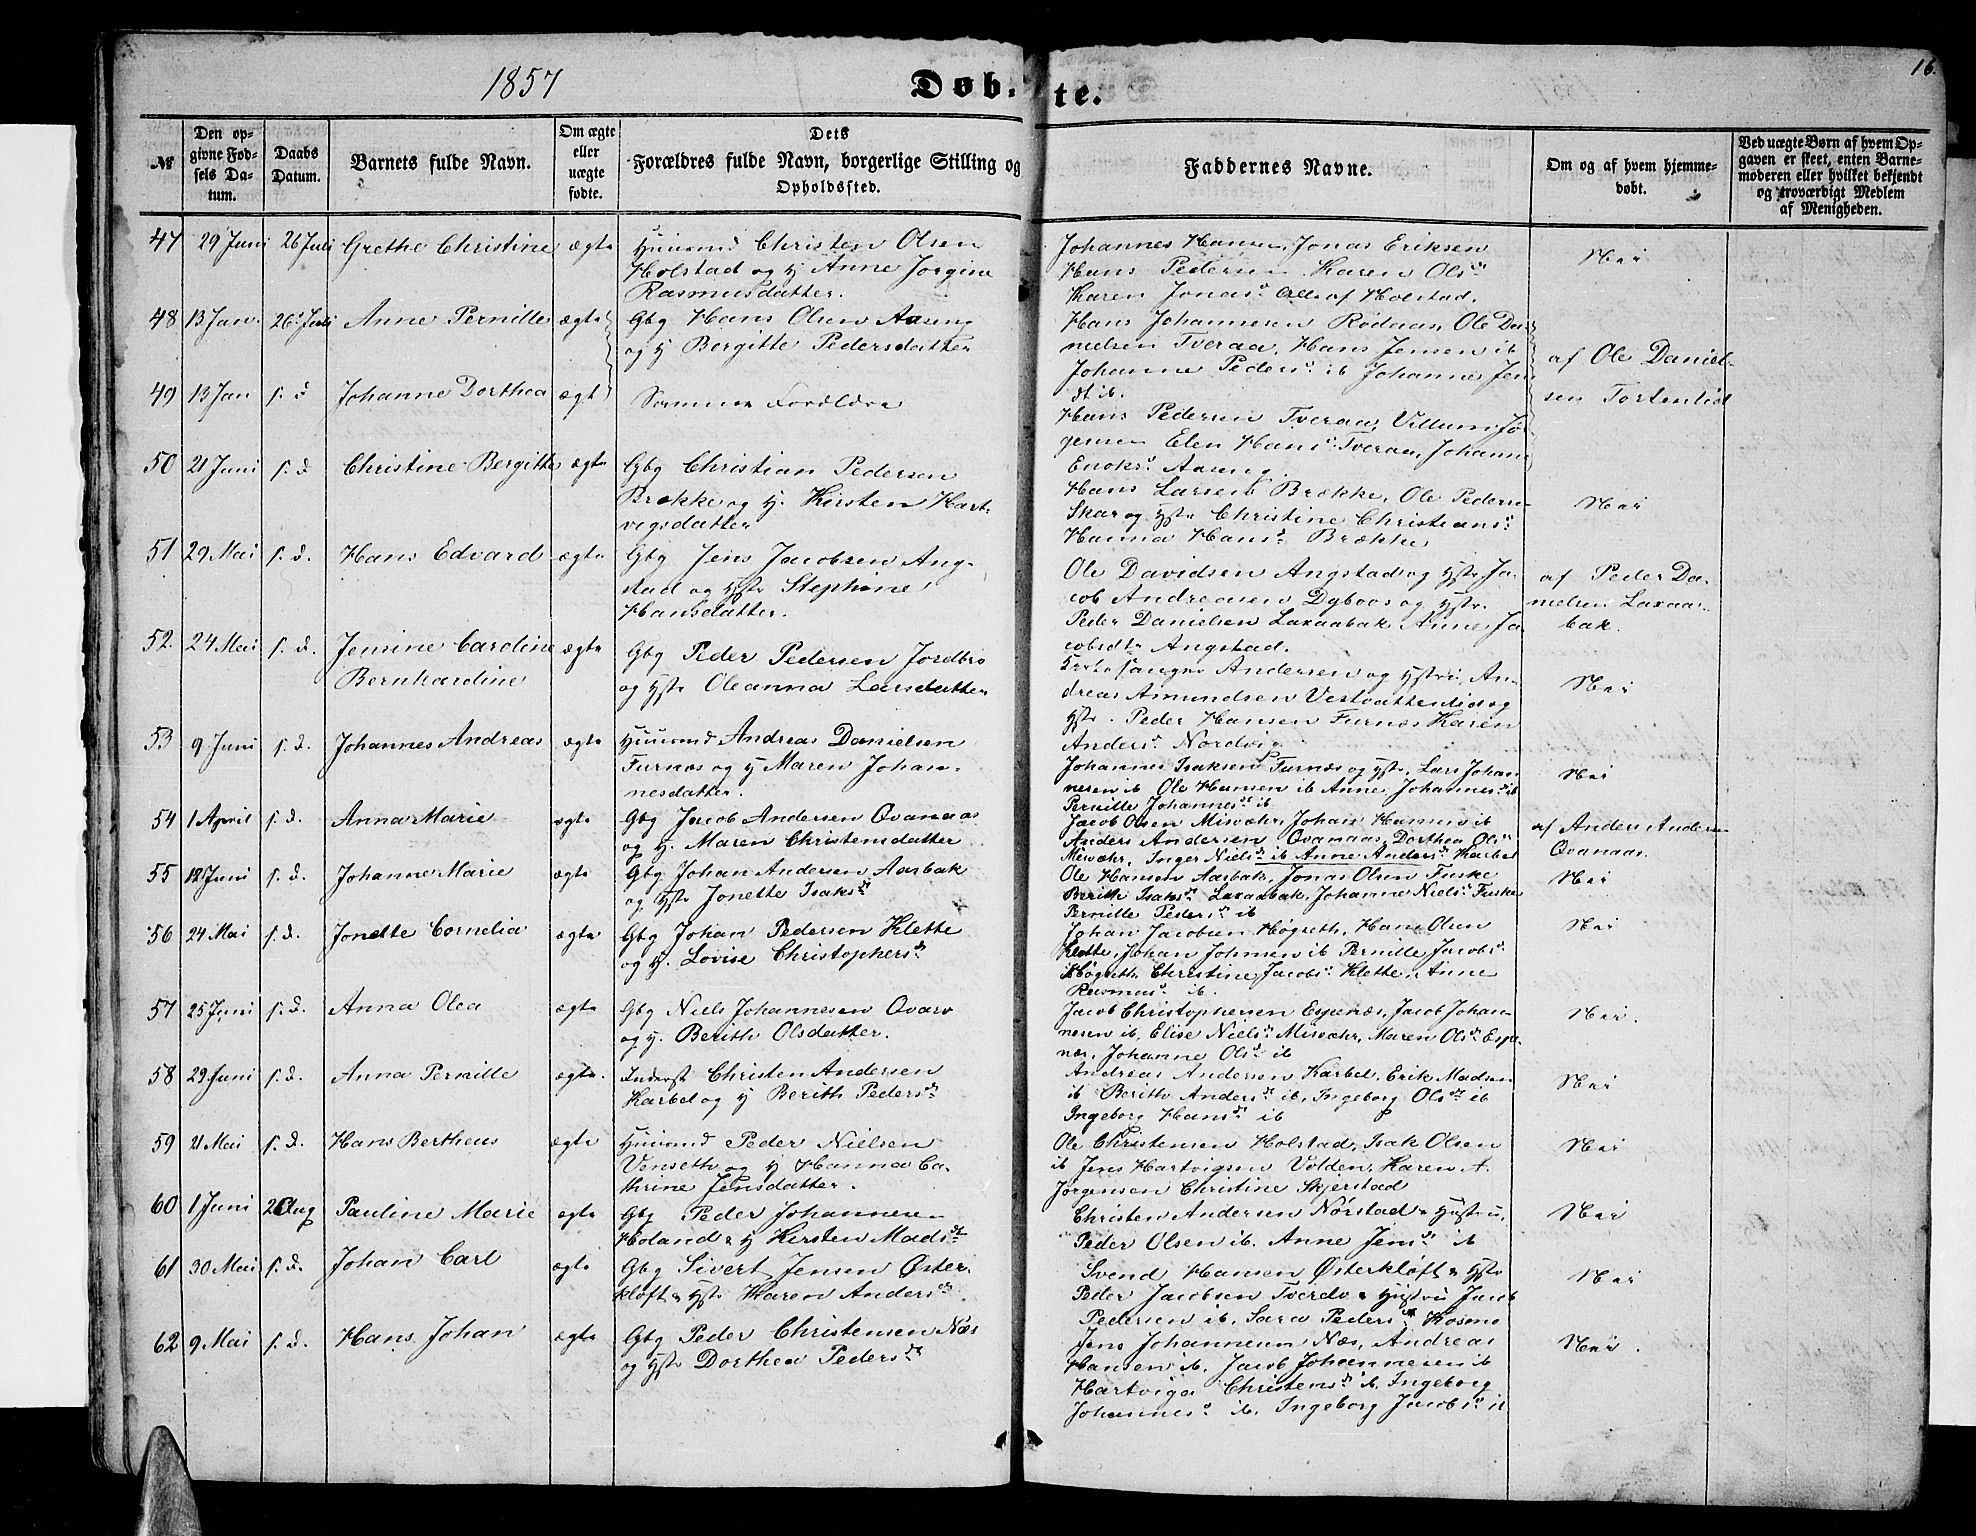 1857
Døbte.
16.
№
Den opgivne Fødsels Datum.
Daabs Datum.
Barnets fulde Navn.
Om ægte eller uægte fødte.
Dets Forældres fulde Navn, borgerlige Stilling og Opholdssted.
Faddernes Navne.
Om og af hvem hjemmedøbt.
Ved uægte Børn af hvem Opgaven er skeet, enten Barnemoderen eller hvilket bekjendt og troværdigt Medlem af Menigheden.
47 29 Juni 26 Juli Grethe Christine ægte Huusmd Christen Olsen
Holstad og H Anne Jorgine
Rasmusdatter.
Johannes Hansen, Jonas Eriksen
Hans Pedersen Karen Olsd
Karen Jonasd Alle af Holstad.
Nei
48 13 Jan. 26 Juli Anne Pernille ægte Gbg Hans Olsen Aaseng
og H Bergitte Pedersdatter
Hans Johannesen Rødaas, Ole Da-
nielsen Tveraa, Hans Jensen ib
Johanne Pedersd ib Johanne Jen
dt ib.
af Ole Daniel-
sen Tortenlid
49 13 Jan s. d Johanne Dorthea ægt Samme Forældre
Hans Pedersen Tveraa, Villum Jør-
gensen Elen Hansd Tveraa, Johanne
Enoksd Aaseng
50 21 Juni s. d Christine Bergitte ægte Gbg Christian Pedersen
Brække og H. Kirsten Hart-
vigsdatter
Hans Larsen Brække, Ole Pedersen
Skar og Hstr Christine Christiansd
Hanna Hansd Brække
Nei
51 29 Mai s. d. Hans Edvard ægte Gbg Jens Jacobsen Ang-
stad og Hstr Stephine
Hansdatter.
Ole Davidsen Angstad og Hstr Ja-
cob Andreasen Dybvos og Hstr.
Peder Danielsen Laxaabak Anne Ja-
cobsdtr Angstad.
af Peder Da-
nielsen Laxaa-
bak.
52. 24 Mai s. d. Jensine Cardine
Bernhardine
ægte Gbg Peder Pedersen Jordbro
og Hstr Oleanna Larsdatter
Kirkesanger Andersen og Hstru, An-
dreas Amundsen Vestvattenlid og
Hstr. Peder Hansen Furnæs Karen
Andersd Nordvig
Nei
53 9 Juni s. d. Johannes Andreas ægte Huusmd Andreas Danielsen
Furnæs og H Maren Johan-
nesdatter.
Johannes Isaksen Furnæs og Hstr, Lars Johan-
nesen ib Ole Hansen ib Anne Johannesd ib
Pernille Johannesd ib
Nei
54 1 April s. d. Anna Marie ægte Gbg Jacob Andersen Qvanaas
og H. Maren Christensdatter
Jacob Olsen Misvæhr, Johan Hansen ib
Anders Andersen Qvanaas, Dorthea Olsd
Misvæhr, Inger Nielsd ib Anne Andersd Karbøl
af Anders Andersen
Qvanaas.
55 12 Juni s. d. Johanne Marie ægte Gbg Johan Andersen Aasbak
og Hstr Jonette Isaksd
Ole Hansen Aasbak, Jonas Olsen Fuske
Berith Isaksd Laxaabak, Johanne Nielsd Fuske
Pernille Pedersd ib
Nei
56 24 Mai s. d. Jonette Cornelia ægte Gbg Johan Pedersen Klette
og H. Lovise Christophersd
Johan Jacobsen Høgseth, Hans Olsen
Klette, Johan Johnsen ib Pernille Jacobsd
Høgseth Christine Jacobsd Klette, Anne
Rasmusd ib.
Nei
57 25 Juni s. d. Anna Olea ægte Gbg Niels Johannesen Qvarv
og H. Berith Olsdatter.
Jacob Christophersen Espenæs, Jacob Johan-
nesen ib, Elise Nielsd Misvæhr, Maren Olsd Espe-
næs, Johanne Olsd ib
Nei.
58 29 Juni s. d. Anna Pernille ægte. Inderst Christen Andersen
Karbøl og H Berith Pedersd
Andreas Andersen Karbøl, Erik Madsen
ib Berith Andersd ib, Ingeborg Olsd ib
Ingeborg Hansd ib
Nei
59 21 Mai s. d. Hans Bertheus ægte Huusmd Peder Nielsen
Venseth og H Hanna Ca-
thrine Jensdatter.
Ole Christensen Holstad, Isak Olsen
ib Jens Hartvigsen Volden, Karen A.
Jørgensen Christine Skjerstad
Nei
60 1 Juni 2 Aug Pauline Marie ægte Gbg Peder Johannesen
Høland & H Kirsten Madsd
Christen Andersen Nørstad & Hustru,
Peder Olsen ib. Anne Jensd ib
Nei
61 30 Mai s. d. Johan Carl ægte Gbg Sivert Jensen Øster-
kløft & Hstr Karen Andersd.
Svend Hansen Østerkløft & Hstr
Peder Jacobsen Tverdv & Hustru Jacob
Pedersen ib. Sara Pedersd Kosmo
Nei
62 9 Mai s. d. Hans Johan ægte Gbg Peder Christensen Næs
og Hstr Dorthea Pedersd
Jens Johannesen Næs, Andreas
Hansen ib. Jacob Johannesen ib
Hartviga Christensd ib. Ingeborg
Johannesd ib. Ingeborg Jacobsd ib
Nei.